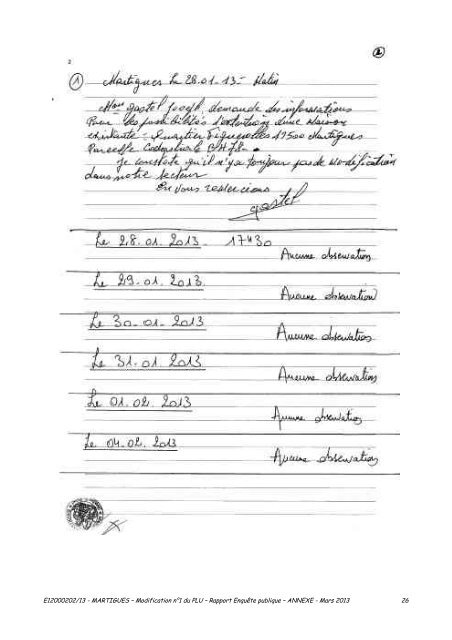 ②
2
① Martigues le 28.01-13- Matin
Mr gastel Joseph, demande des informations
Pour les possibilités d'extention d'une Maison
existante - Quartier Figuerolles 13500 Martigues
Parcelle Cadastrale BH 78-
Je constate qu'il n'y a toujour pas de modification
dans notre secteur
En vous remerciant
gastel
Le 28.01.2013- 17H30
Aucune observation
Le 29.01.2013
Aucune observation
Le 30-01-2013
Aucune observation
Le 31.01.2013
Aucune observation
Le 01.02.2013
Aucune observation
Le 04.02.2013
Aucune observation
E12000202/13 - MARTIGUES – Modification n°1 du PLU – Rapport Enquête publique – ANNEXE - Mars 2013 26